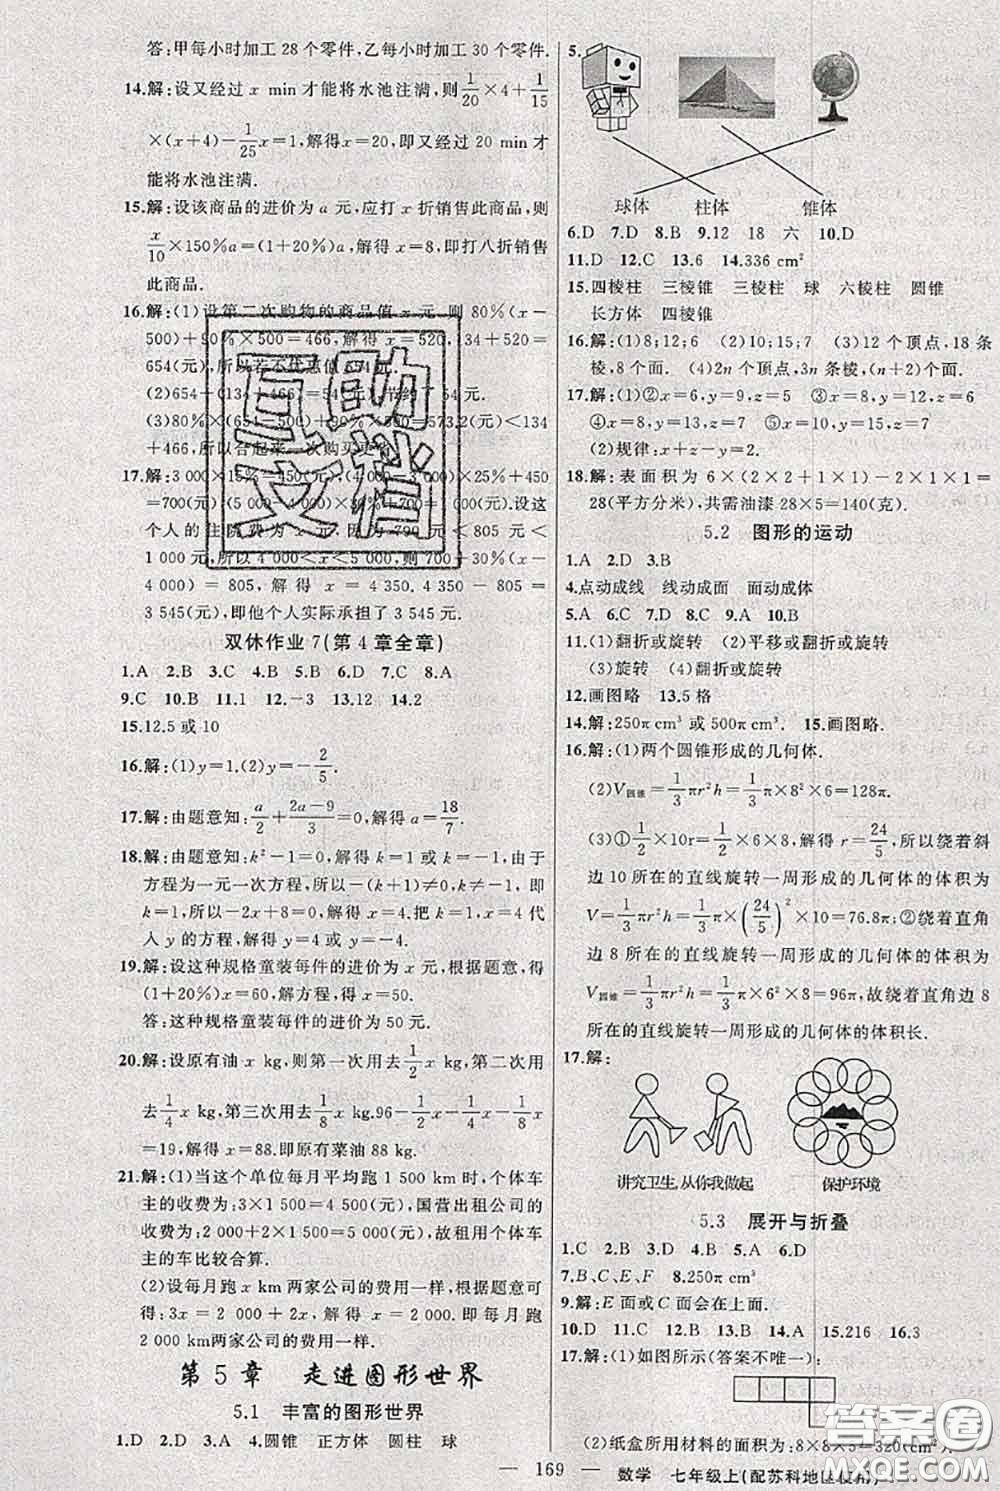 答:甲每小时加工28个零件,乙每小时加工30个零件.
14.解:设又经过 x min才能将水池注满,则1/20×4+1/15
×(x+4)-1/25x=1,解得x=20,即又经过20 min才
能将水池注满.
15.解:设该商品的进价为a元,应打x折销售此商品,则
x/10×150%a=(1+20%)a,解得x=8,即打八折销售
此商品.
16.解:(1)设第二次购物的商品值x元,则80%(x-
500)+90%×500=466,解得x=520,134+520=
654(元),所以若不优惠值654元.
(2)654-(134+466)=54(元).
(3)80%×(654-500)+90%×500=573.2(元)<134
+466,所以合起来一次购买更
17.解:3 000×15%+(4 000-3 000)×25%+450
=700(元) (5 000-4 000)×30%+
个人的住院费为x元,因为700<805<
所以4 000<x<5 000,所以700+30%(x-
4 000)=805,解得x=4 350.4 350-805=
3 545(元),即他个人实际承担了3 545元.
双休作业7(第4章全章)
1.A 2.B 3.C 4.B 5.B 6.D 7.C 8.A
9.C 10.B 11.1 12.-3 13.12 14.2
15.12.5或10
16.解:(1)y=1.(2)y=-2/5.
17.解:由题意知:a/2+(2a-9)/3=0,解得a=18/7.
18.解:由题意知:k²-1=0,解得k=1或k=-1,由于
方程为一元一次方程,所以-(k+1)≠0,k≠-1,即
k=1,所以-2x+8=0,解得x=4.把k=1,x=4代
入y的方程,解得y=4或y=-4.
19.解:设这种规格童装每件的进价为x元,根据题意,得
(1+20%)x=60,解方程,得x=50.
答:这种规格童装每件的进价为50元.
20.解:设原有油x kg,则第一次用去1/2x kg,第二次用
去1/4x kg,第三次用去1/8x kg.96-1/2x-1/4x-1/8x
=19,解得x=88.即原有菜油88 kg.
21.解:(1)当这个单位每月平均跑1 500 km时,个体车
主的收费为:3×1 500=4 500(元),国营出租公司的
收费为:2 000+2×1 500=5 000(元),故租用个体车
主的车比较合算.
(2)设每月跑x km两家公司的费用一样,根据题意可
得:3x=2 000+2x,解得x=2 000.即每月跑
2 000 km两家公司的费用一样.
第5章 走进图形世界
5.1 丰富的图形世界
1.D 2.D 3.A 4.圆锥 正方体 圆柱 球
5.
球体 柱体 锥体
6.D 7.D 8.B 9.12 18 六 10.D
11.D 12.C 13.6 14.336 cm²
15.四棱柱 三棱锥 三棱柱 球 六棱柱 圆锥
长方体 四棱锥
16.解:(1)8;12;6 (2)7;12;7 (3)12个顶点,18条
棱,8个面. (4)2n个顶点,3n条棱,(n+2)个面.
17.解:(1)②x=6,y=9,z=5 ③x=8,y=12,z=6
④x=8,y=13,z=7 ⑤x=10,y=15,z=7
(2)规律:x+z-y=2.
18.解:表面积为6×(2×2+1×1)-2×1×1=
28(平方分米),共需油漆28×5=140(克).
5.2 图形的运动
1.A 2.D 3.B
4.点动成线 线动成面 面动成体
5.A 6.C 7.D 8.C 9.A 10.B
11.(1)翻折或旋转 (2)平移或翻折或旋转
(3)旋转 (4)翻折或旋转
12.画图略 13.5格
14.解:250π cm³或500π cm³. 15.画图略.
16.解:(1)两个圆锥形成的几何体.
(2)V圆锥=1/3πr²h=1/3π×8²×6=128π.
(3)①1/2×10r=1/2×6×8,解得r=24/5,所以绕着斜
边10所在的直线旋转一周形成的几何体的体积为
V=1/3πr²h=1/3π×(24/5)²×10=76.8π;②绕着直角
边8所在的直线旋转一周形成的几何体的体积为
V圆锥=1/3πr²h=1/3π×6²×8=96π,故绕着直角边8
所在的直线旋转一周形成的几何体的体积长.
17.解:
讲究卫生,从你我做起 保护环境
5.3 展开与折叠
1.C 2.B 3.B 4.A 5.A 6.D
7.B、C、E、F 8.250π cm³
9.解:E面或C面会在上面.
10.D 11.C 12.B 13.B 14.A 15.216 16.3
17.解:(1)如图所示(答案不唯一):
(2)纸盒所用材料的面积为:8×8×5=320(cm²)
— 169 — 数学 七年级上(配苏科地区使用)
互助文档
答案圈
MXQE.COM